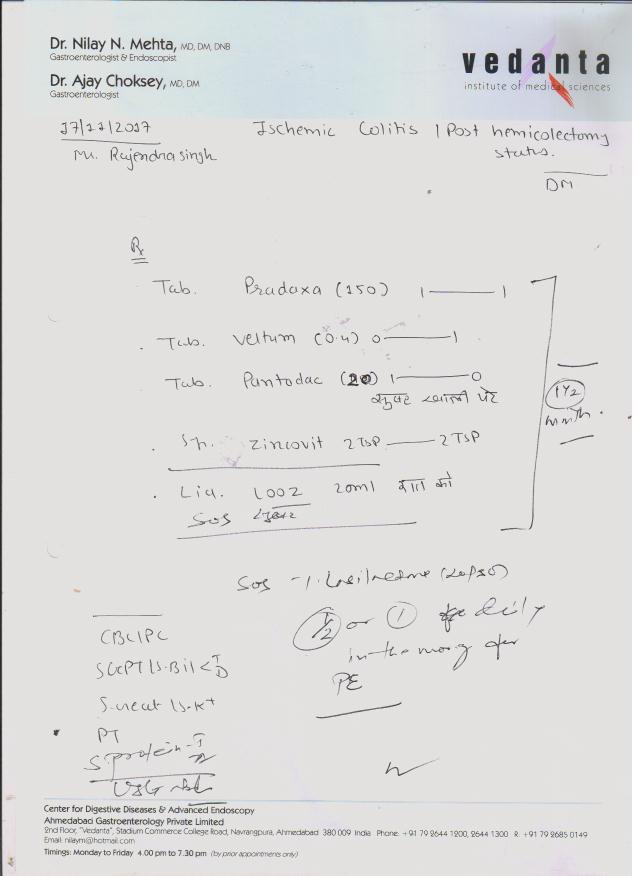 Dr. Nilay N. Mehta, MD, DM, DNB
Gastroenterologist & Endoscopist
Dr. Ajay Choksey, MD, DM
Gastroenterologist
vedanta
institute of medical sciences
17/11/2017
Mr. Rajendrasingh
Ischemic Colitis / Post hemicolectomy
status.
DM
Rx
Tab. Pradaxa (150) 1 — 1
Tab. Veltum (0.4) 0 — 1
Tab. Pantodac (20) 1 — 0
सुबह खाली पेट
1 1/2
month.
Sy. Zincovit 2 TSP — 2 TSP
Liq. LOOZ 20ml रात को
SOS
SOS
1/2 or 1 daily
in the morning for
PE
CBC/PC
SGPT/S.Bil < T D
S.creat/S.K+
PT
S.protein - T
USG
Center for Digestive Diseases & Advanced Endoscopy
Ahmedabad Gastroenterology Private Limited
2nd Floor, "Vedanta", Stadium Commerce College Road, Navrangpura, Ahmedabad 380 009 India Phone: +91 79 2644 1200, 2644 1300 R. +91 79 2685 0149
Email: nilaym@hotmail.com
Timings: Monday to Friday 4.00 pm to 7.30 pm (by prior appointments only)